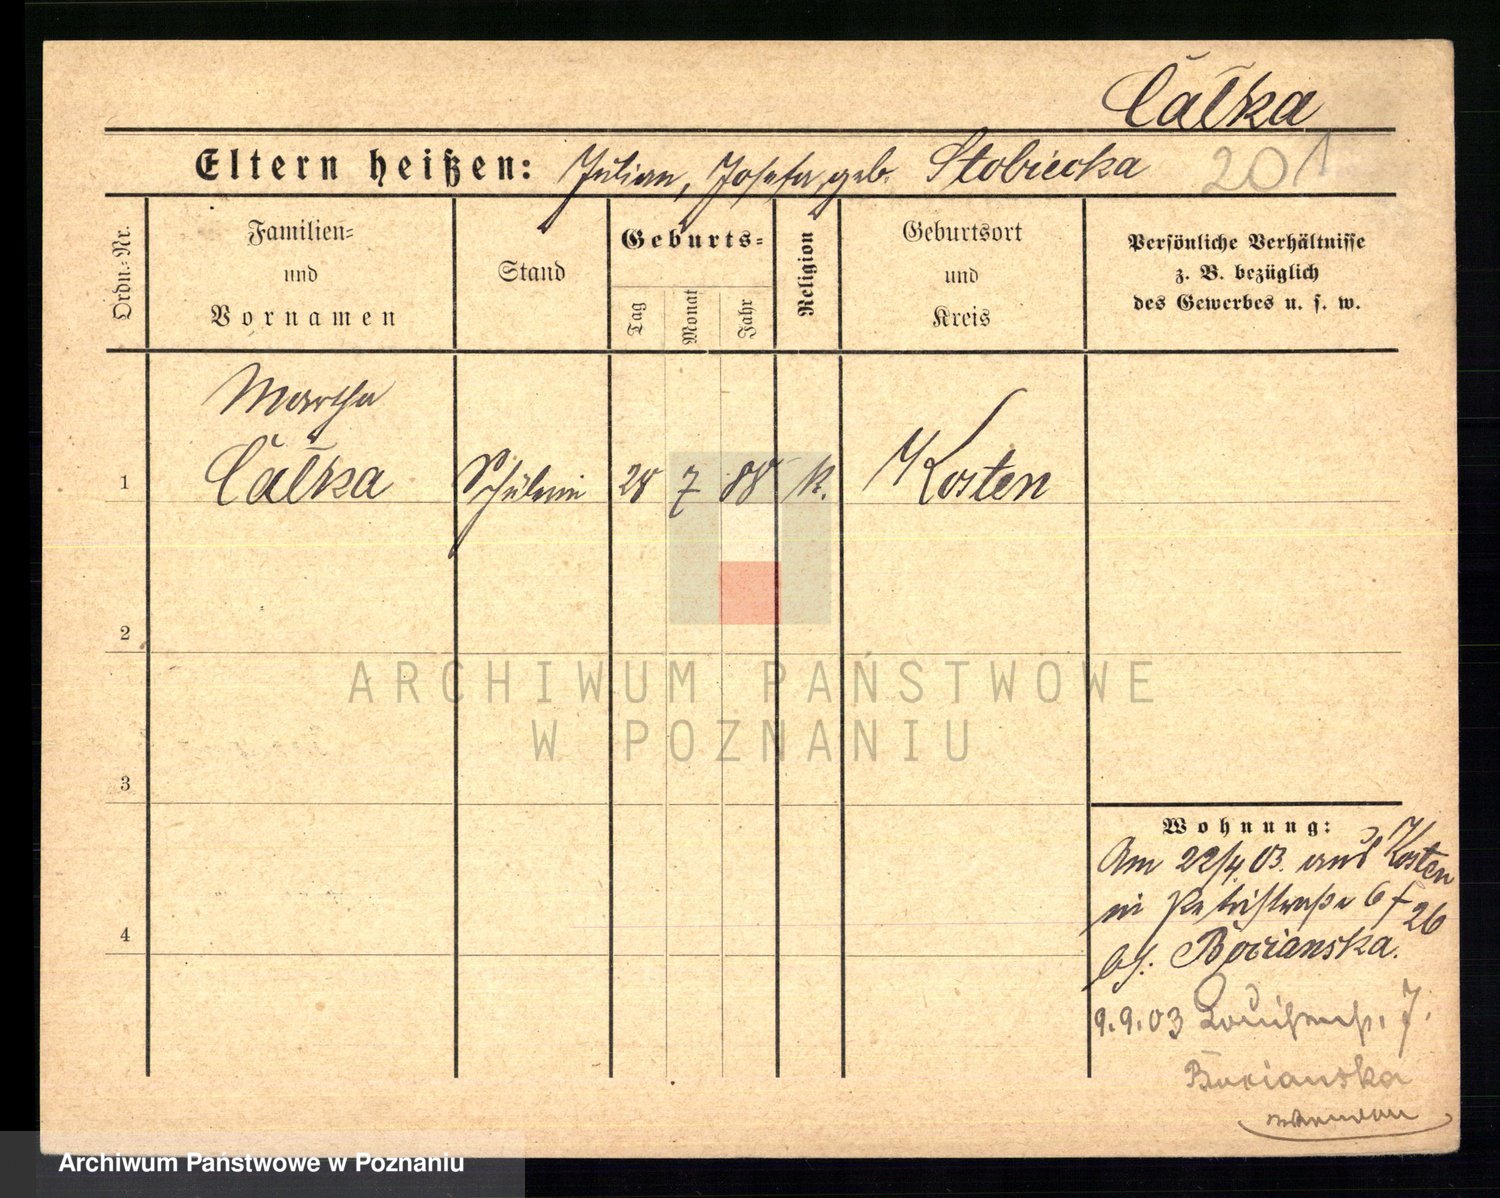 Całka
Eltern heißen: Julian, Josefa, geb. Stobiecka
201
Ordn.-Nr.
Familien-
und
Vornamen
Stand
Geburts-
Tag
Monat
Jahr
Religion
Geburtsort
und
Kreis
Persönliche Verhältnisse
z. B. bezüglich
des Gewerbes u. s. w.
Martha
1 Całka Schülerin 28 7 88 k. Kosten
2
3
4
Wohnung:
Am 22/4 03. aus Kosten
in Petristraße 6 f 26
bf. Bocianska.
9.9.03 Louisenst. 7.
Bocianska
ARCHIWUM PAŃSTWOWE
W POZNANIU
Archiwum Państwowe w Poznaniu